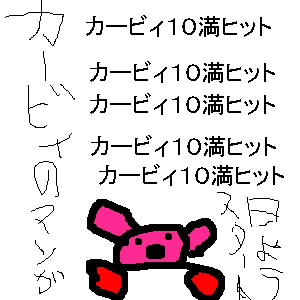 カービィ10満ヒット
カービィ10満ヒット
カービィ10満ヒット
カービィ10満ヒット
カービィ10満ヒット
カービィのマンガ
日よう
スタート